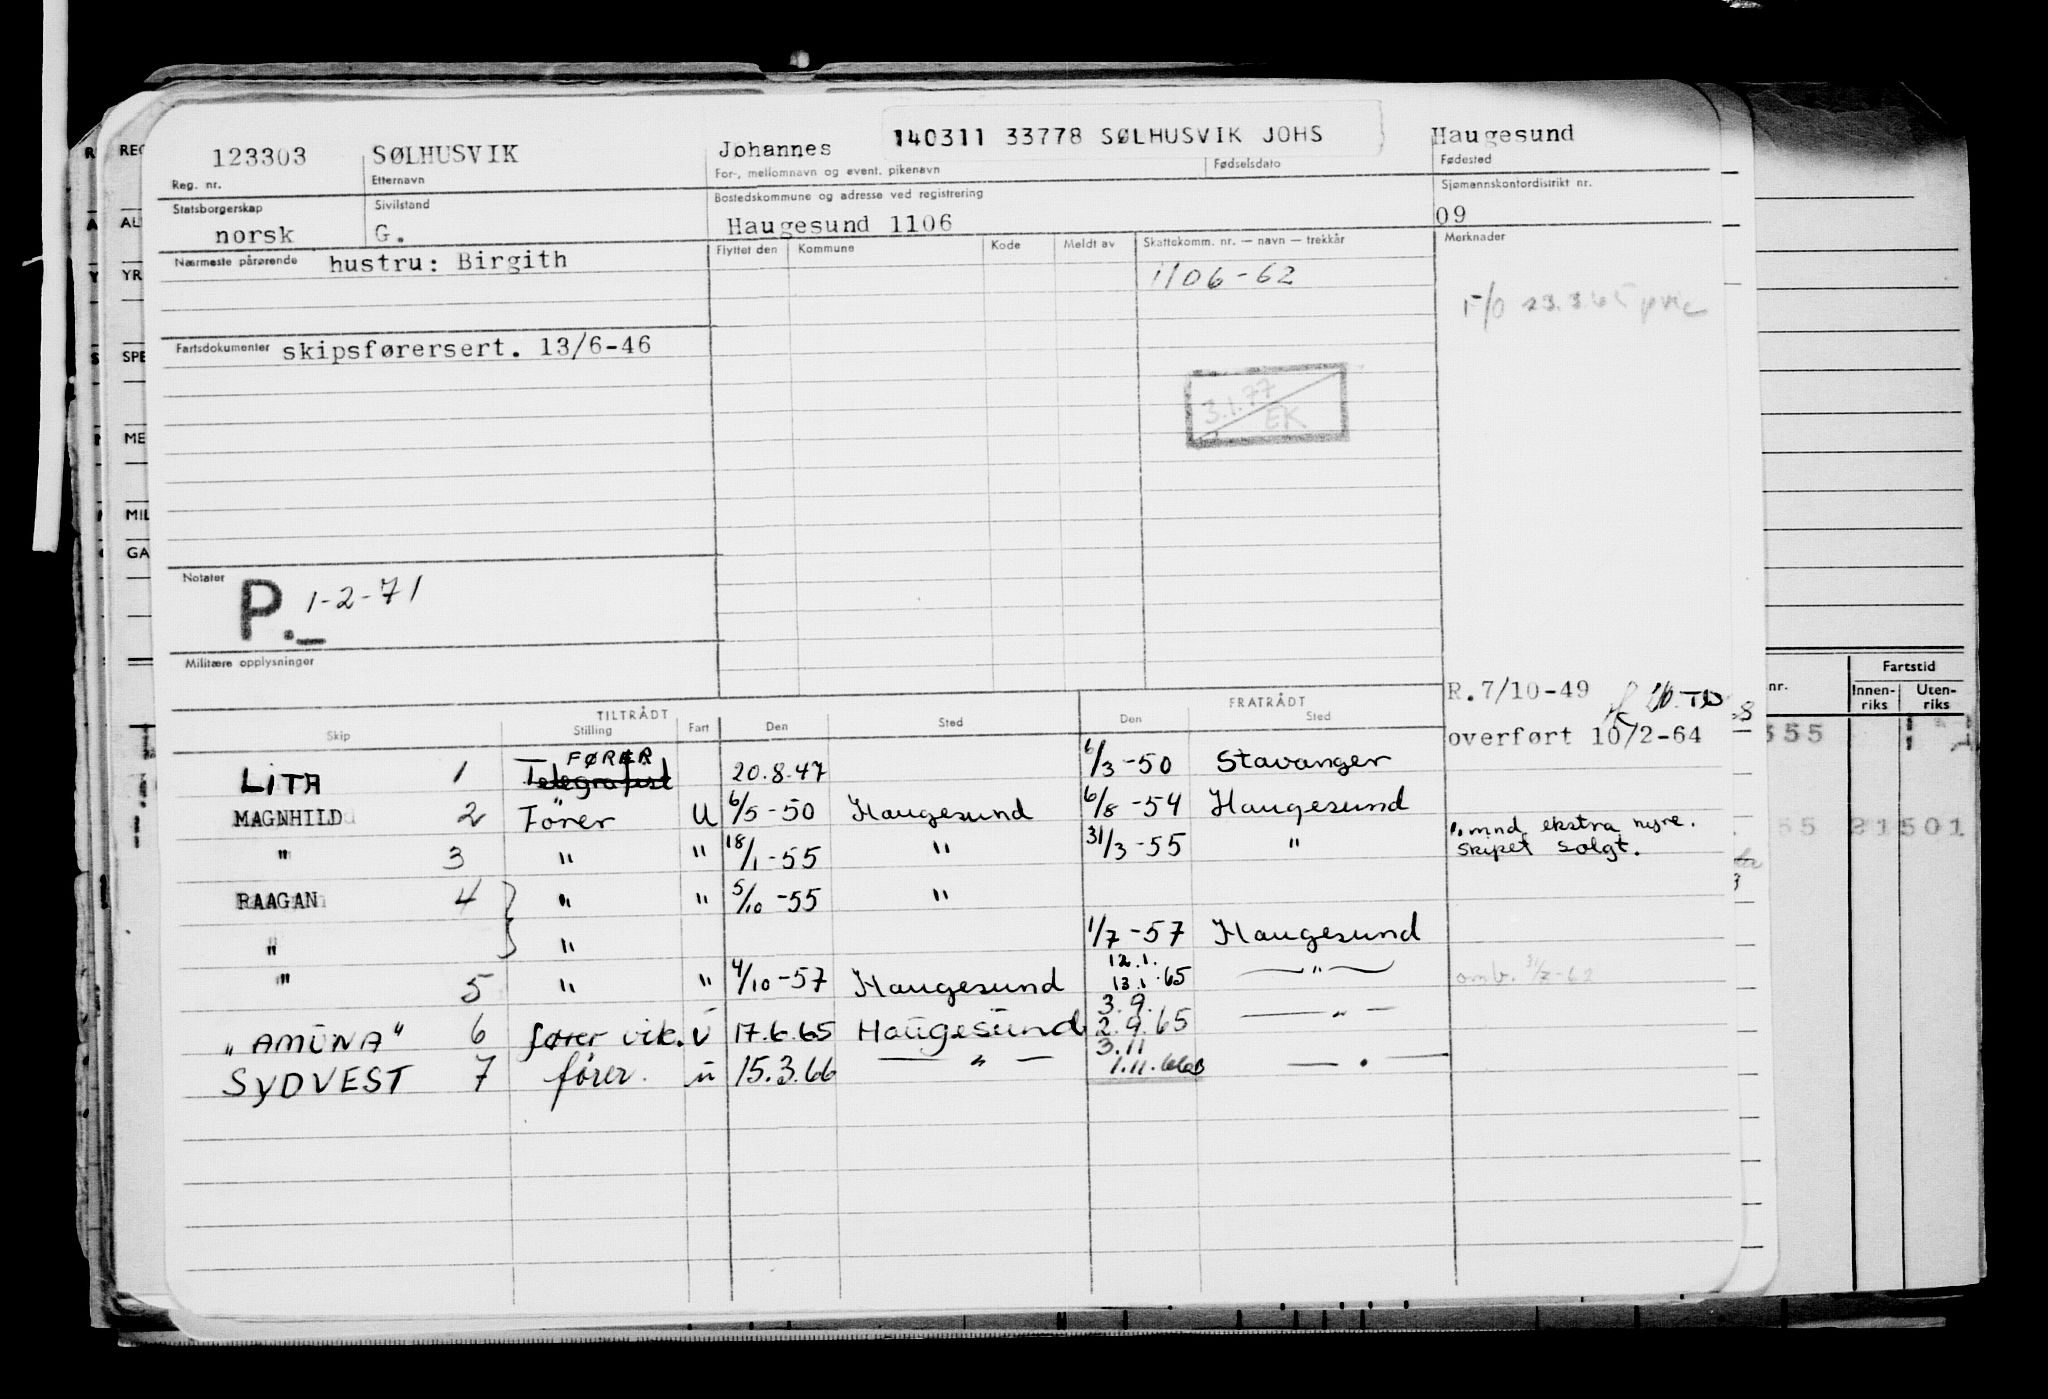 123303 SØLHUSVIK Johannes 140311 33778 SØLHUSVIK JOHS Haugesund
Reg. nr. Etternavn For-, mellomnavn og event. pikenavn Fødselsdato Fødested
Statsborgerskap Sivilstand Bostedskommune og adresse ved registrering Sjømannskontordistrikt nr.
norsk G. Haugesund 1106 09
Nærmeste pårørende hustru: Birgith Flyttet den Kommune Kode Meldt av Skattekomm. nr. — navn — trekkår Merknader
1106-62
F/O
Fartsdokumenter skipsførersert. 13/6-46
3.1.77
EK
Notater
P. 1-2-71
Militære opplysninger
R.7/10-49
overført 10/2-64
TILTRÅDT FRATRÅDT
Skip Stilling Fart Den Sted Den Sted
FØRER
LITA 1 Telegrafist 20.8.47 6/3-50 Stavanger
MAGNHILD 2 Fører U 6/5-50 Haugesund 6/8-54 Haugesund
" 3 " " 18/1-55 " 31/3-55 "
mnd. ekstra hyre.
skipet solgt.
RAAGAN 4 " " 5/10-55 "
" " 1/7-57 Haugesund
" 5 " " 4/10-57 Haugesund 12.1. 13.1.65 "
"AMUNA" 6 fører vik. U 17.6.65 Haugesund 3.9. 2.9.65 "
SYDVEST 7 fører. u 15.3.66 " 3.11 1.11.66 "
REG
ALT
YR
SPE
ME
MIL
GA
nr. Fartstid
Innen-
riks
Uten-
riks
555
55 21501